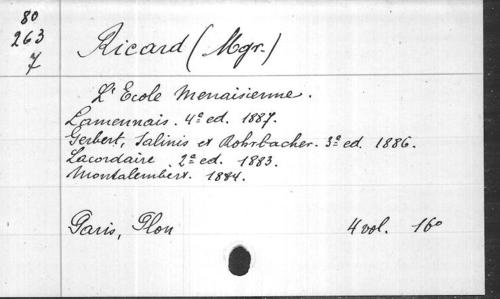 80
263
7
Ricard (Mgr.)
L'Ecole Menaisienne.
Lamennais. 4e ed. 1887.
Gerbert, Salinis et Rohrbacher. 3e ed. 1886.
Lacordaire. 2e ed. 1883.
Montalembert. 1884.
Paris, Plon 4 vol. 16°